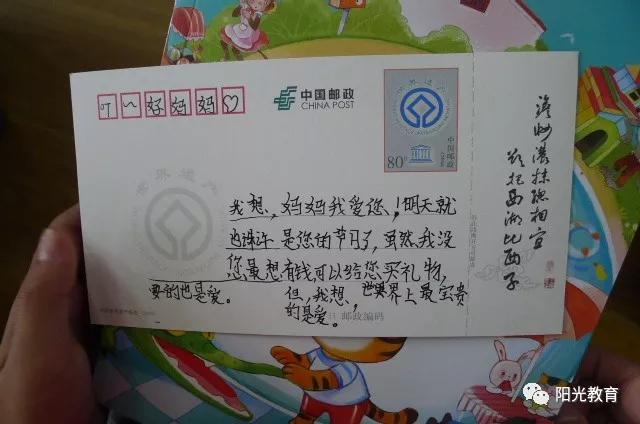 叮～好妈妈♡
中国邮政
CHINA POST
世界遗产
80分
中国邮政
我想,妈妈我爱您,!明天就
是您的节日了,虽然我没
有钱可以给您买礼物,
但,我想,世界上最宝贵
的是爱。
也许
您最想
要的也是爱。
邮政编码
澹妝濃抹總相宜
欲把西湖比西子
阳光教育